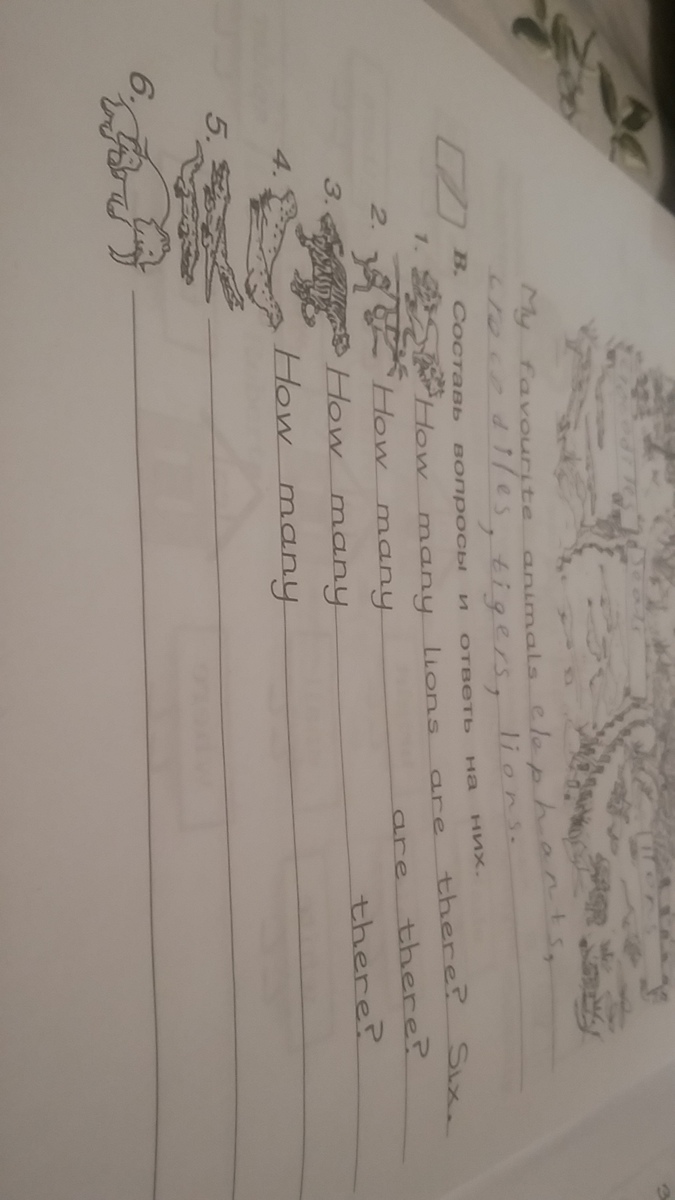 My favourite animals elephants,
crocodiles, tigers, lions.
B. Составь вопросы и ответь на них.
1. How many lions are there? Six.
2. How many are there?
3. How many there?
4. How many
5.
6.